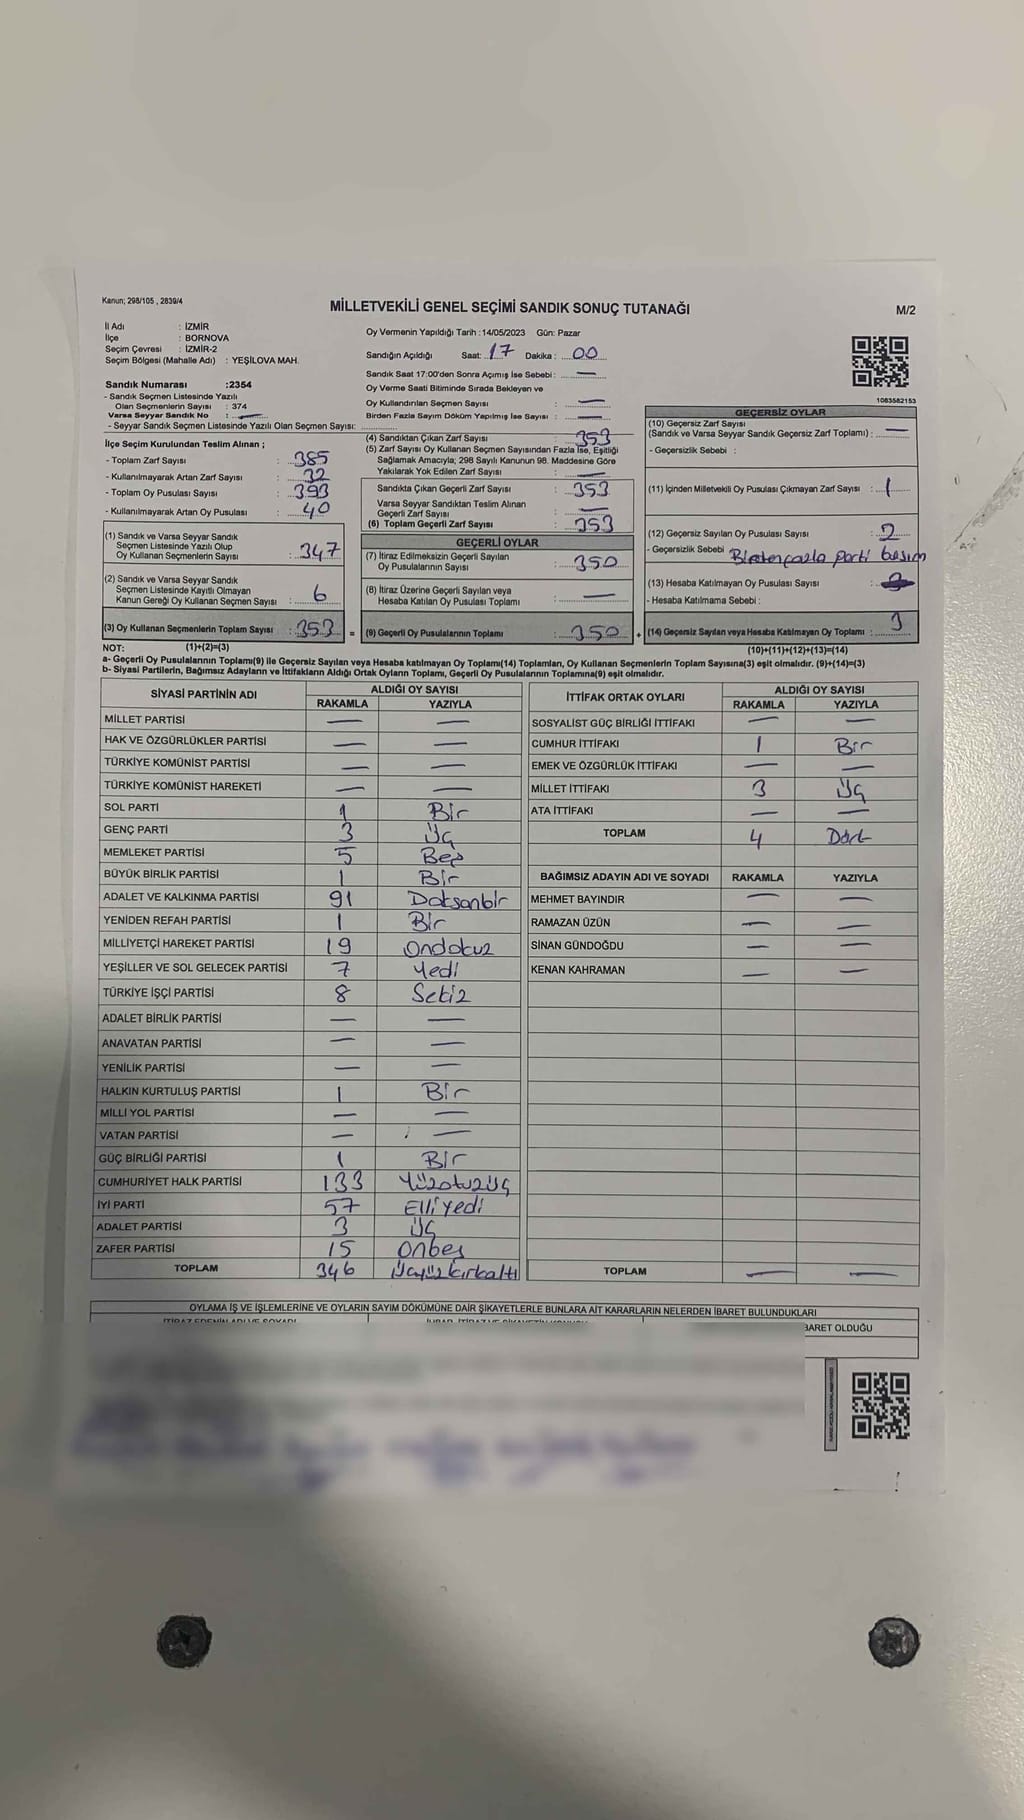 Kanun; 298/105 , 2839/4
MİLLETVEKİLİ GENEL SEÇİMİ SANDIK SONUÇ TUTANAĞI
M/2
İl Adı : İZMİR
İlçe : BORNOVA
Seçim Çevresi : İZMİR-2
Seçim Bölgesi (Mahalle Adı) : YEŞİLOVA MAH.
Sandık Numarası :2354
- Sandık Seçmen Listesinde Yazılı
Olan Seçmenlerin Sayısı : 374
Varsa Seyyar Sandık No : —
- Seyyar Sandık Seçmen Listesinde Yazılı Olan Seçmen Sayısı:
Oy Vermenin Yapıldığı Tarih : 14/05/2023 Gün: Pazar
Sandığın Açıldığı Saat: 17 Dakika : 00
Sandık Saat 17:00'den Sonra Açımış İse Sebebi : —
Oy Verme Saati Bitiminde Sırada Bekleyen ve
Oy Kullandırılan Seçmen Sayısı : —
Birden Fazla Sayım Döküm Yapılmış İse Sayısı : —
1083582153
İlçe Seçim Kurulundan Teslim Alınan ;
- Toplam Zarf Sayısı : 385
- Kullanılmayarak Artan Zarf Sayısı : 32
- Toplam Oy Pusulası Sayısı : 393
- Kullanılmayarak Artan Oy Pusulası : 40
(1) Sandık ve Varsa Seyyar Sandık
Seçmen Listesinde Yazılı Olup
Oy Kullanan Seçmenlerin Sayısı : 347
(2) Sandık ve Varsa Seyyar Sandık
Seçmen Listesinde Kayıtlı Olmayan
Kanun Gereği Oy Kullanan Seçmen Sayısı : 6
(3) Oy Kullanan Seçmenlerin Toplam Sayısı : 353
(4) Sandıktan Çıkan Zarf Sayısı : 353
(5) Zarf Sayısı Oy Kullanan Seçmen Sayısından Fazla İse, Eşitliği
Sağlamak Amacıyla; 298 Sayılı Kanunun 98. Maddesine Göre
Yakılarak Yok Edilen Zarf Sayısı : —
Sandıkta Çıkan Geçerli Zarf Sayısı : 353
Varsa Seyyar Sandıktan Teslim Alınan
Geçerli Zarf Sayısı : —
(6) Toplam Geçerli Zarf Sayısı : 353
GEÇERLİ OYLAR
(7) İtiraz Edilmeksizin Geçerli Sayılan
Oy Pusulalarının Sayısı : 350
(8) İtiraz Üzerine Geçerli Sayılan veya
Hesaba Katılan Oy Pusulası Toplamı : —
= (9) Geçerli Oy Pusulalarının Toplamı : 350
GEÇERSİZ OYLAR
(10) Geçersiz Zarf Sayısı
(Sandık ve Varsa Seyyar Sandık Geçersiz Zarf Toplamı) : —
- Geçersizlik Sebebi :
(11) İçinden Milletvekili Oy Pusulası Çıkmayan Zarf Sayısı : 1
(12) Geçersiz Sayılan Oy Pusulası Sayısı : 2
- Geçersizlik Sebebi : Birden fazla parti basım
(13) Hesaba Katılmayan Oy Pusulası Sayısı :
- Hesaba Katılmama Sebebi :
+ (14) Geçersiz Sayılan veya Hesaba Katılmayan Oy Toplamı : 3
NOT: (1)+(2)=(3)
(10)+(11)+(12)+(13)=(14)
a- Geçerli Oy Pusulalarının Toplamı(9) ile Geçersiz Sayılan veya Hesaba katılmayan Oy Toplamı(14) Toplamları, Oy Kullanan Seçmenlerin Toplam Sayısına(3) eşit olmalıdır. (9)+(14)=(3)
b- Siyasi Partilerin, Bağımsız Adayların ve İttifakların Aldığı Ortak Oyların Toplamı, Geçerli Oy Pusulalarının Toplamına(9) eşit olmalıdır.
SİYASİ PARTİNİN ADI ALDIĞI OY SAYISI
RAKAMLA YAZIYLA
MİLLET PARTİSİ — —
HAK VE ÖZGÜRLÜKLER PARTİSİ — —
TÜRKİYE KOMÜNİST PARTİSİ — —
TÜRKİYE KOMÜNİST HAREKETİ — —
SOL PARTİ 1 Bir
GENÇ PARTİ 3 Üç
MEMLEKET PARTİSİ 5 Beş
BÜYÜK BİRLİK PARTİSİ 1 Bir
ADALET VE KALKINMA PARTİSİ 91 Doksanbir
YENİDEN REFAH PARTİSİ 1 Bir
MİLLİYETÇİ HAREKET PARTİSİ 19 Ondokuz
YEŞİLLER VE SOL GELECEK PARTİSİ 7 Yedi
TÜRKİYE İŞÇİ PARTİSİ 8 Sekiz
ADALET BİRLİK PARTİSİ — —
ANAVATAN PARTİSİ — —
YENİLİK PARTİSİ — —
HALKIN KURTULUŞ PARTİSİ 1 Bir
MİLLİ YOL PARTİSİ — —
VATAN PARTİSİ — —
GÜÇ BİRLİĞİ PARTİSİ 1 Bir
CUMHURİYET HALK PARTİSİ 133 Yüzotuzüç
İYİ PARTİ 57 Elliyedi
ADALET PARTİSİ 3 Üç
ZAFER PARTİSİ 15 Onbeş
TOPLAM 346 Üçyüzkırkaltı
İTTİFAK ORTAK OYLARI ALDIĞI OY SAYISI
RAKAMLA YAZIYLA
SOSYALİST GÜÇ BİRLİĞİ İTTİFAKI — —
CUMHUR İTTİFAKI 1 Bir
EMEK VE ÖZGÜRLÜK İTTİFAKI — —
MİLLET İTTİFAKI 3 Üç
ATA İTTİFAKI — —
TOPLAM 4 Dört
BAĞIMSIZ ADAYIN ADI VE SOYADI RAKAMLA YAZIYLA
MEHMET BAYINDIR — —
RAMAZAN ÜZÜN — —
SİNAN GÜNDOĞDU — —
KENAN KAHRAMAN — —
TOPLAM — —
OYLAMA İŞ VE İŞLEMLERİNE VE OYLARIN SAYIM DÖKÜMÜNE DAİR ŞİKAYETLERLE BUNLARA AİT KARARLARIN NELERDEN İBARET BULUNDUKLARI
BARET OLDUĞU